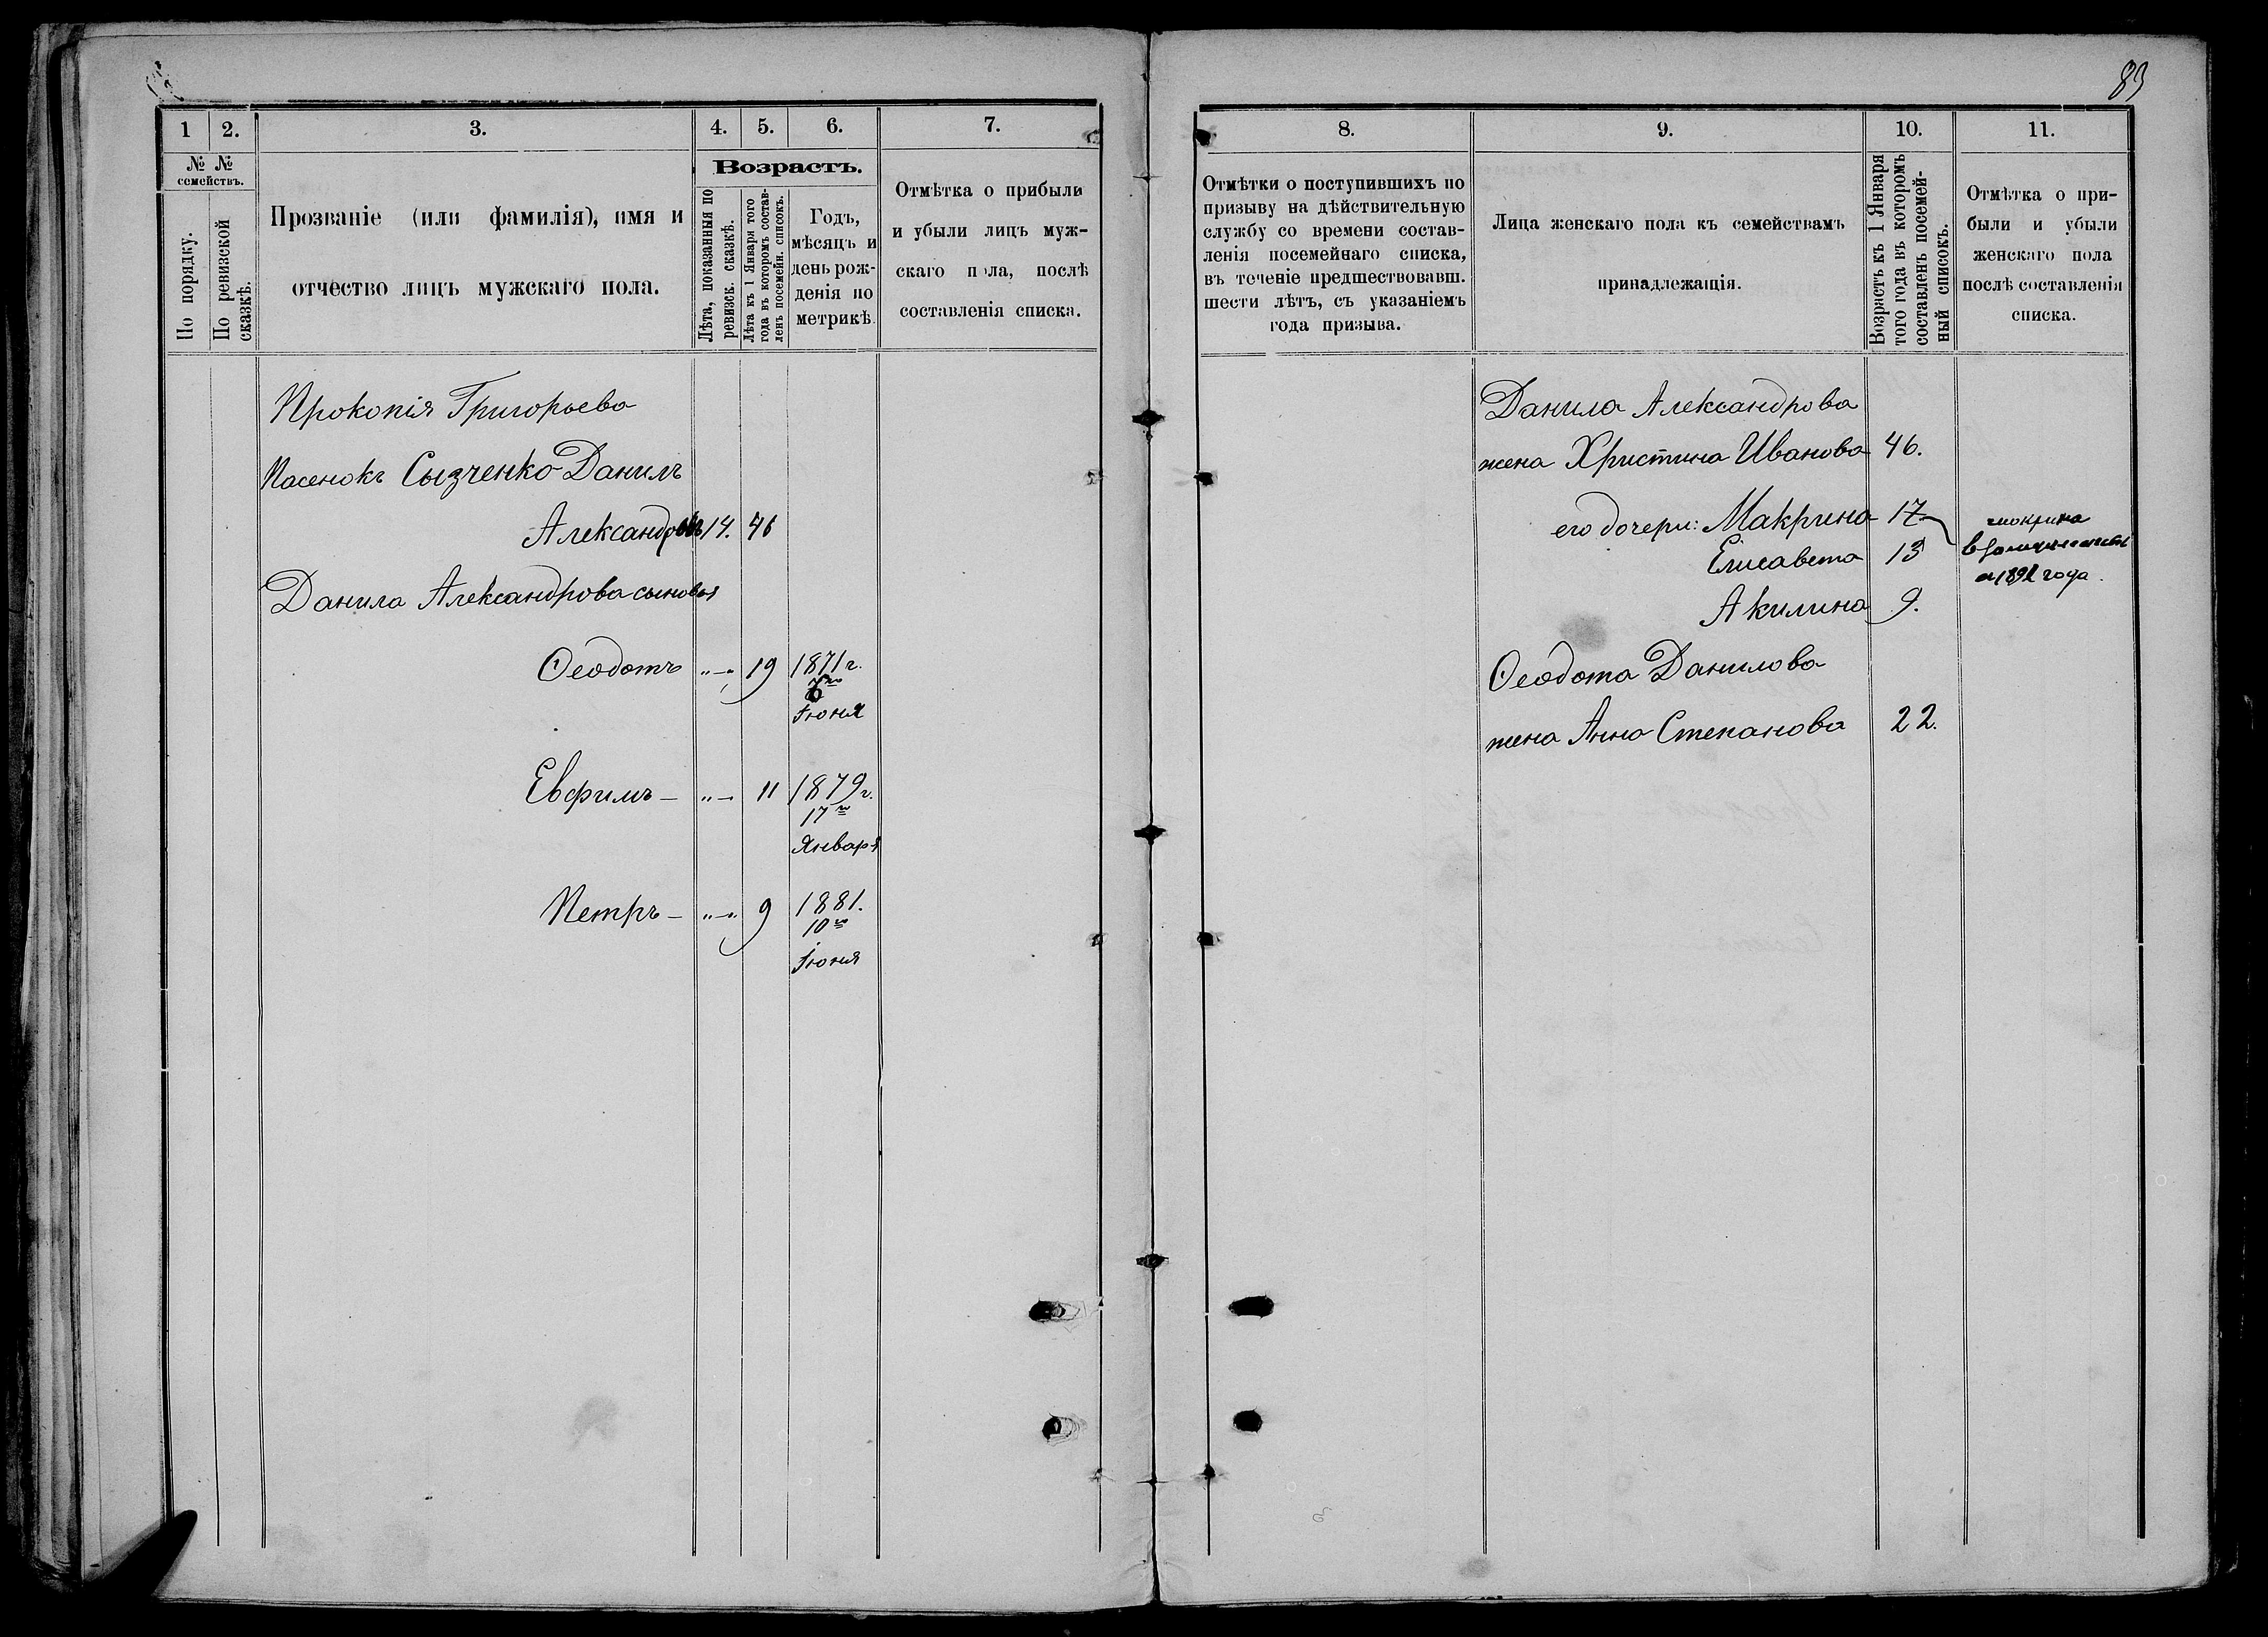 83
1
2.
3.
4.
5.
6.
7.
№ №
семействъ.
По порядку.
По ревизской
сказкѣ.
Прозваніе (или фамилія), имя и
отчество лицъ мужскаго пола.
Возрастъ.
Лѣта, показанныя по
ревизск. сказкѣ.
Лѣта къ 1 Января того
года въ которомъ состав-
ленъ посемейн. списокъ.
Годъ,
мѣсяцъ и
день рож-
денія по
метрикѣ.
Отмѣтка о прибыли
и убыли лицъ муж-
скаго пола, послѣ
составленія списка.
Прокопія Григорьева
Пасенокъ Сызченко Данилъ
Александровъ 14. 46
Данила Александрова сыновья
Ѳеодотъ „—„ 19 1871 г.
Іюня
Евфимъ — „—„ 11 1879 г.
17го
Января
Петръ — „—„ 9 1881.
10го
Іюня
8.
9.
10.
11.
Отмѣтки о поступившихъ по
призыву на дѣйствительную
службу со времени состав-
ленія посемейнаго списка,
въ теченіе предшествовавш.
шести лѣтъ, съ указаніемъ
года призыва.
Лица женскаго пола къ семействамъ
принадлежащія.
Возрастъ къ 1 Января
того года въ которомъ
составленъ посемей-
ный списокъ.
Отмѣтка о при-
были и убыли
женскаго пола
послѣ составленія
списка.
Данила Александрова
жена Христина Иванова 46.
его дочери: Макрина 17
Елисавета 13
Акилина 9.
Макрина
в замужестве
1892 года.
Ѳеодота Данилова
жена Анна Степанова 22.